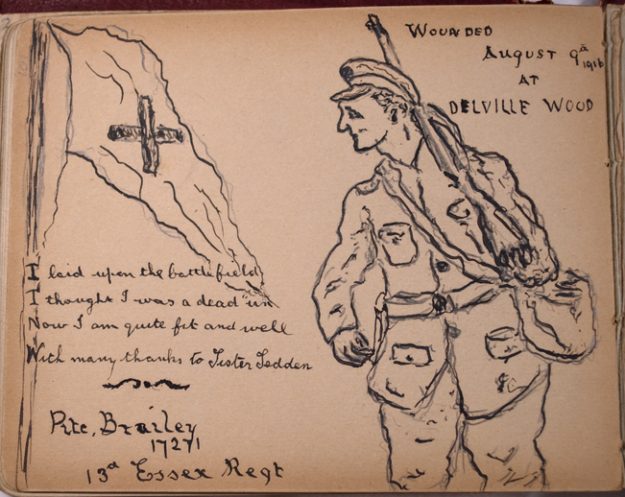 WOUNDED
AUGUST 9th 1916
AT
DELVILLE WOOD
I laid upon the battlefield
I thought I was a dead 'un
Now I am quite fit and well
With many thanks to Sister Tedden
Pte, Brailey
17271
13th Essex Regt